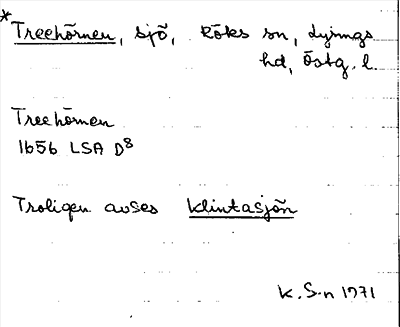 *Treehörnen, sjö, Röks sn, Lysings
hd, Östg. l.
Treehörnen
1656 LSA D8
Troligen avses Klintasjön
K.S-n 1971